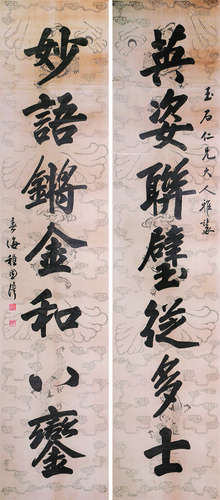 英姿聯璧從多士
玉石仁兄大人雅
妙語鏘金和八鑾
春海程恩澤